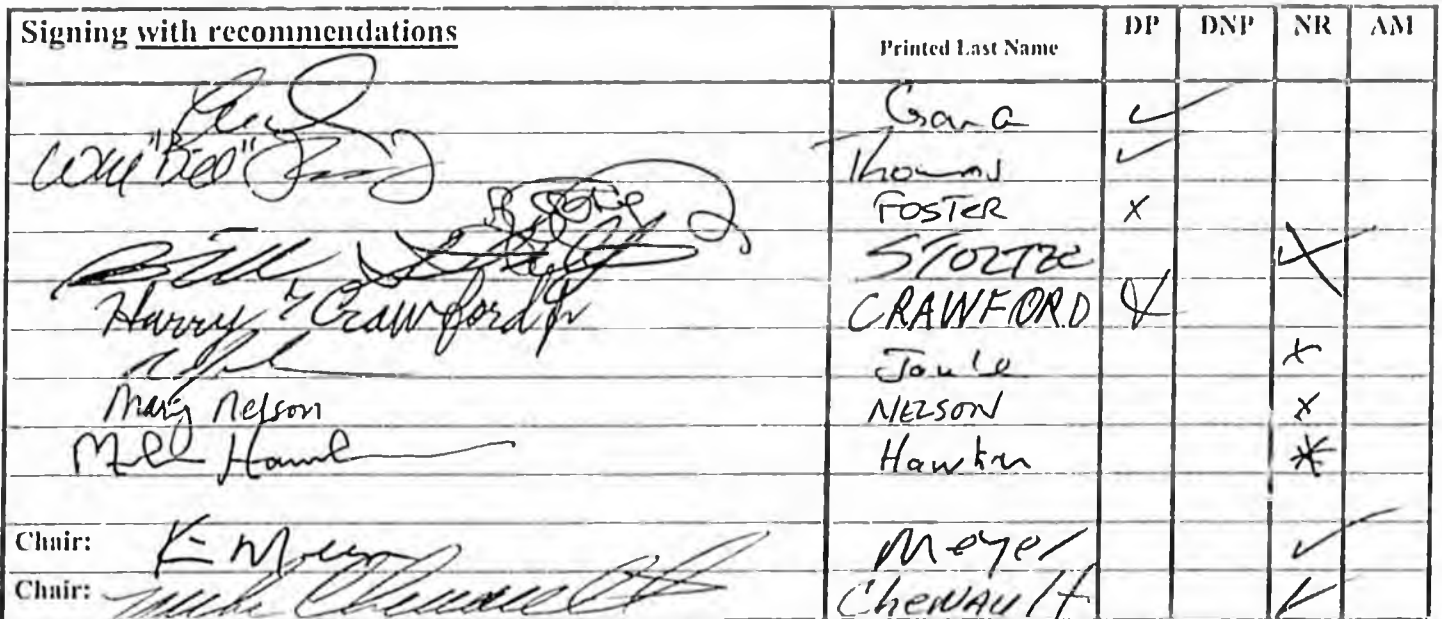 Signing with recommendations Printed Last Name DP DNP NR AM
Gara ✓
Will "Bill" Thomas ✓
FOSTER x
Bill Stoltze STOLTZE x
Harry T Crawford Jr CRAWFORD x
Joule x
Mary Nelson NELSON x
Mike Hawker x
Chair: K Meyer Meyer ✓
Chair: Mike Chenault Chenault ✓